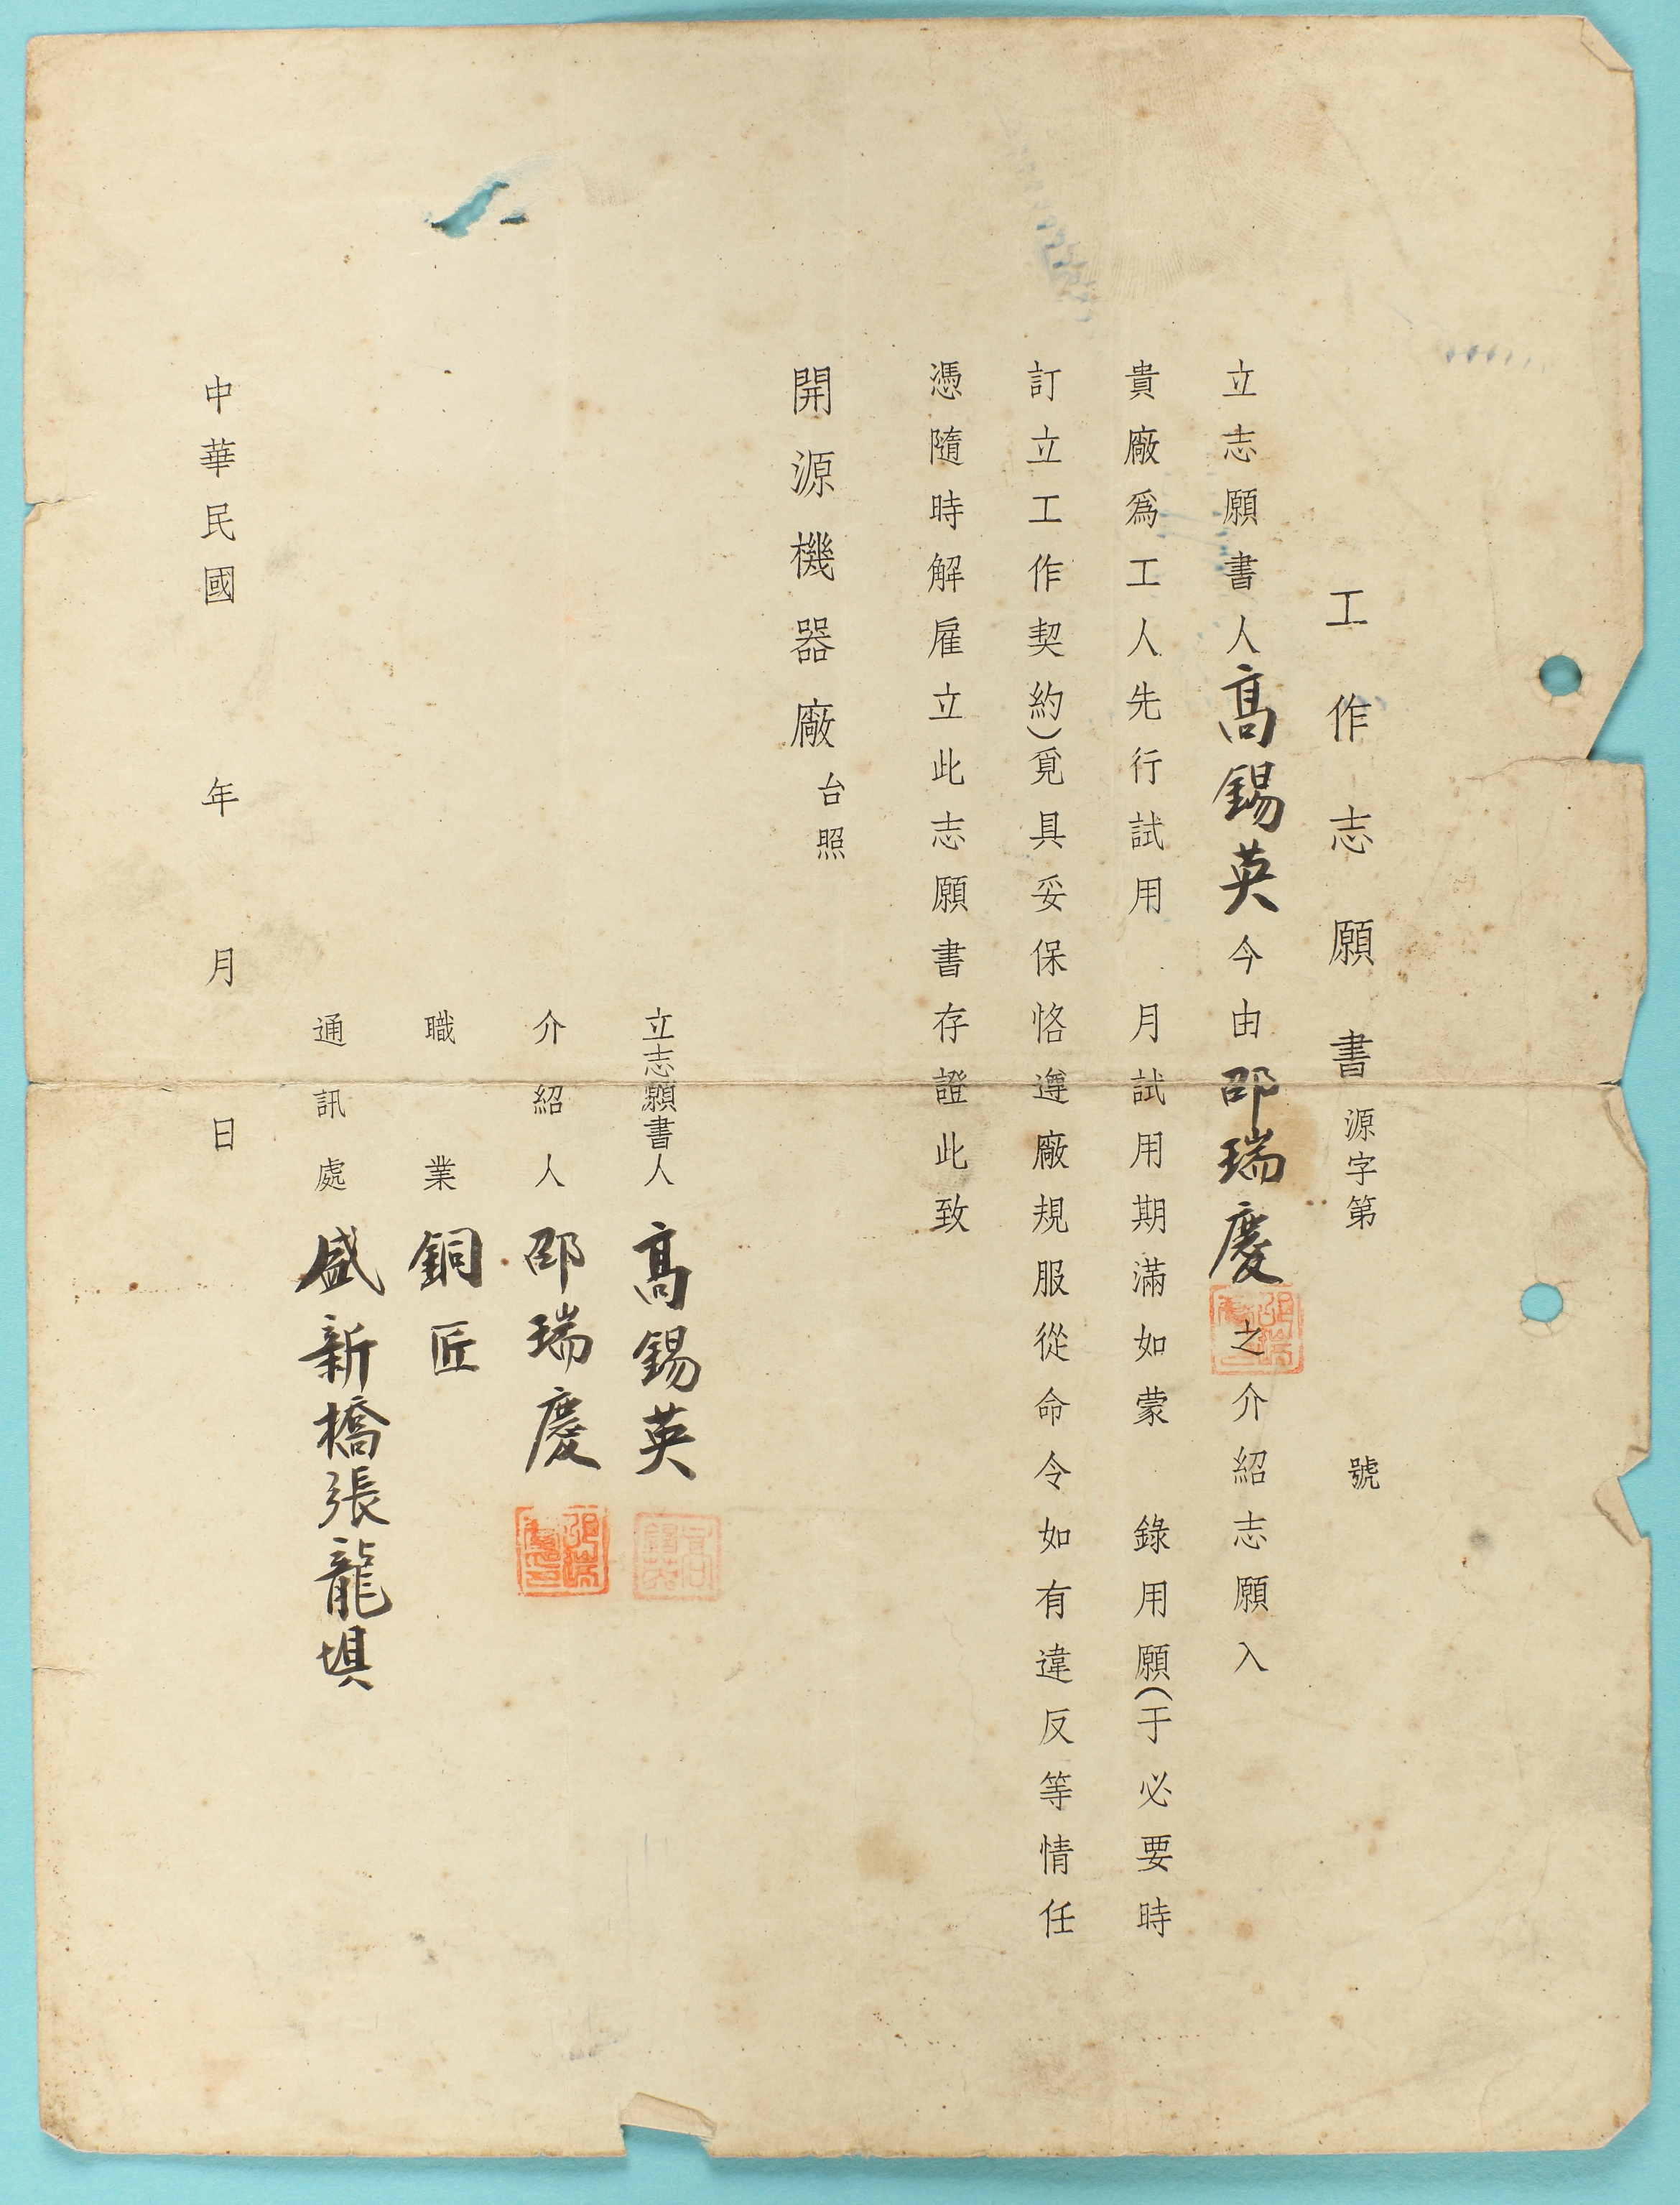 工作志願書 源字第 號
立志願書人高錫英今由邵瑞慶之介紹志願入
貴廠爲工人先行試用 月試用期滿如蒙 錄用願(于必要時
訂立工作契約)覓具妥保恪遵廠規服從命令如有違反等情任
憑隨時解雇立此志願書存證此致
開源機器廠台照
立志願書人 高錫英
高錫英
介紹人 邵瑞慶
邵瑞慶印
職業 銅匠
通訊處 盛新橋張龍埧
中華民國 年 月 日